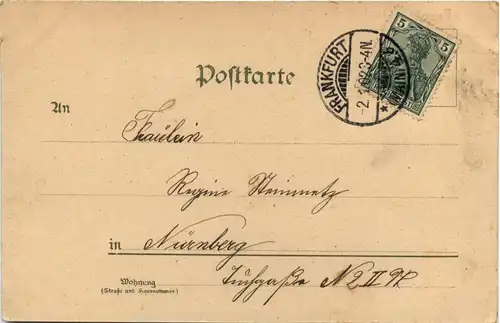 Postkarte
FRANKFURT
(MAIN)
5
An
Fräulein
Regine Steinmetz
in Nürnberg
Wohnung
(Straße und Hausnummer)
Tuchgaße No 2 II